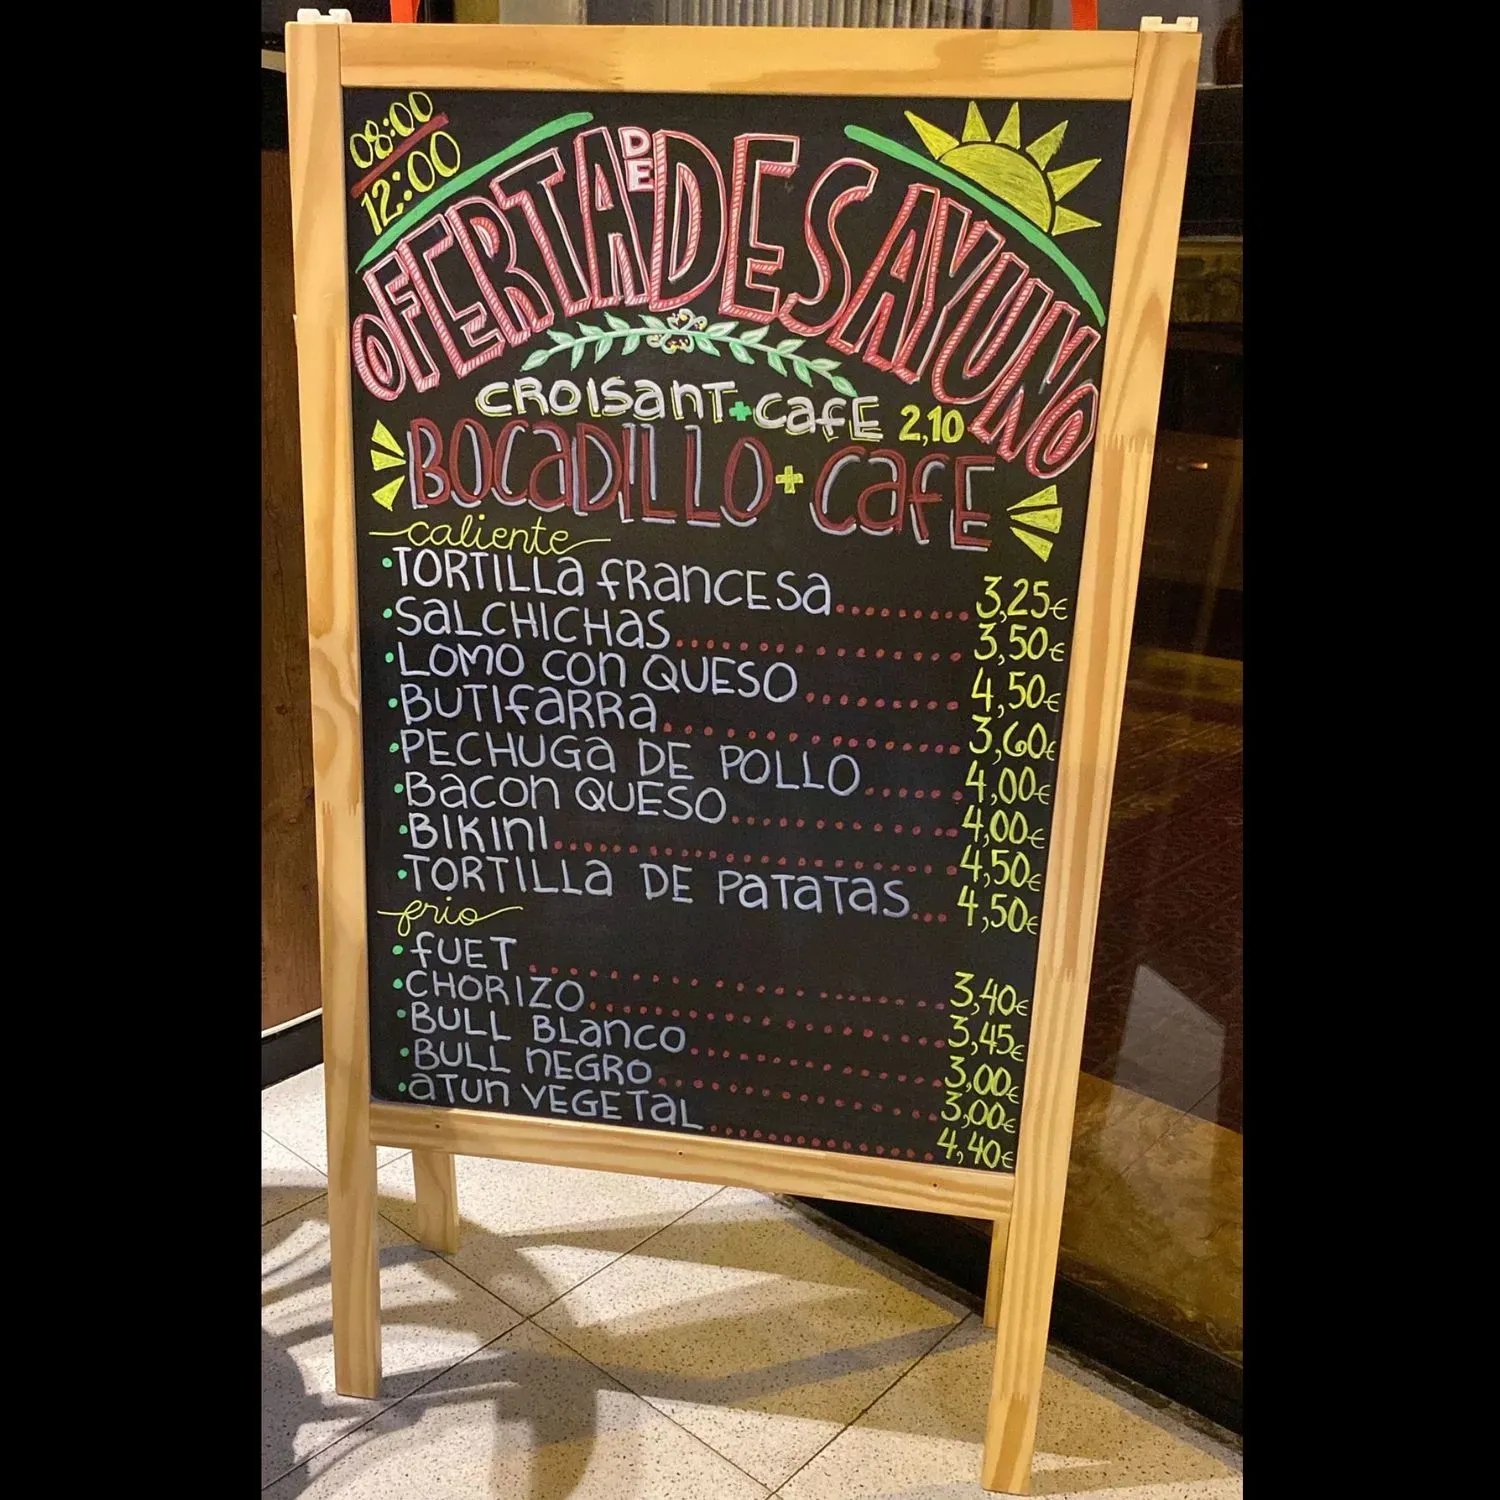 08:00
12:00
OFERTA DE DESAYUNO
CROISANT + CAFE 2,10
BOCADILLO + CAFE
caliente
• TORTILLA FRANCESA ........ 3,25€
• SALCHICHAS ............... 3,50€
• LOMO CON QUESO ........ 4,50€
• BUTIFARRA ............... 3,60€
• PECHUGA DE POLLO ...... 4,00€
• BACON QUESO ............ 4,00€
• BIKINI .................... 4,50€
• TORTILLA DE PATATAS ... 4,50€
frio
• FUET ..................... 3,40€
• CHORIZO .................. 3,45€
• BULL BLANCO ............. 3,00€
• BULL NEGRO .............. 3,00€
• ATUN VEGETAL ............ 4,40€